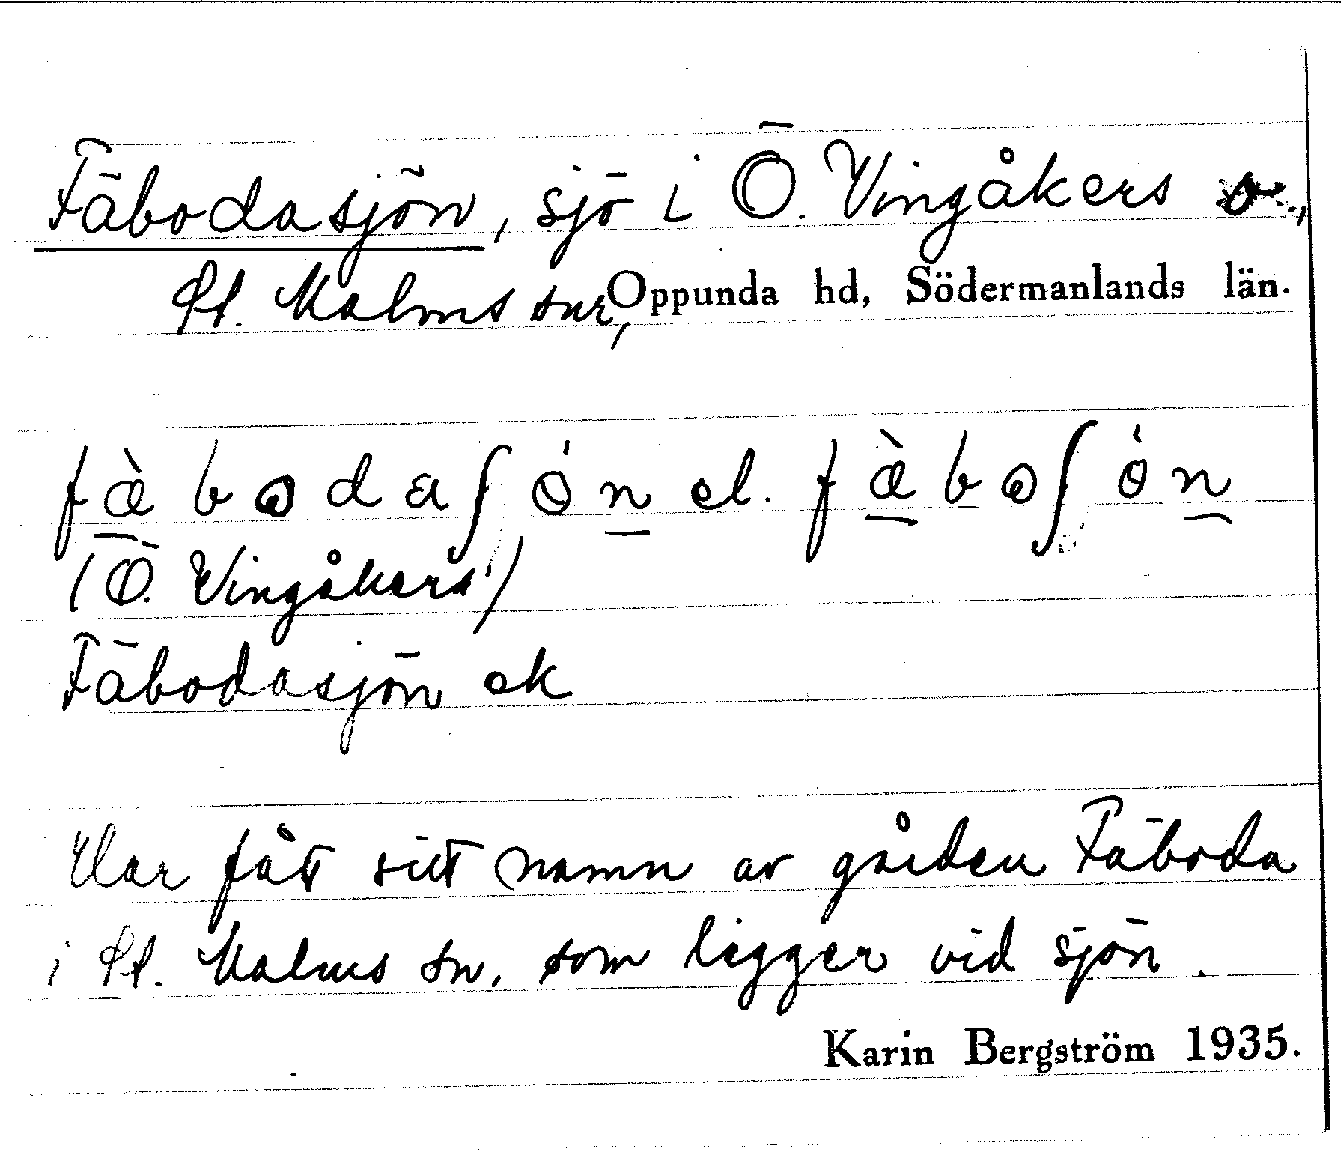 Fäbodasjön, sjö i Ö. Vingåkers o.,
St. Malms snr, Oppunda hd, Södermanlands län.
fæ̀bodaʃȯn el. fæ̀boʃȯn
(Ö. Vingåkers)
Fäbodasjön ek
Har fått sitt namn av gården Fäboda
i St. Malms sn, som ligger vid sjön.
Karin Bergström 1935.